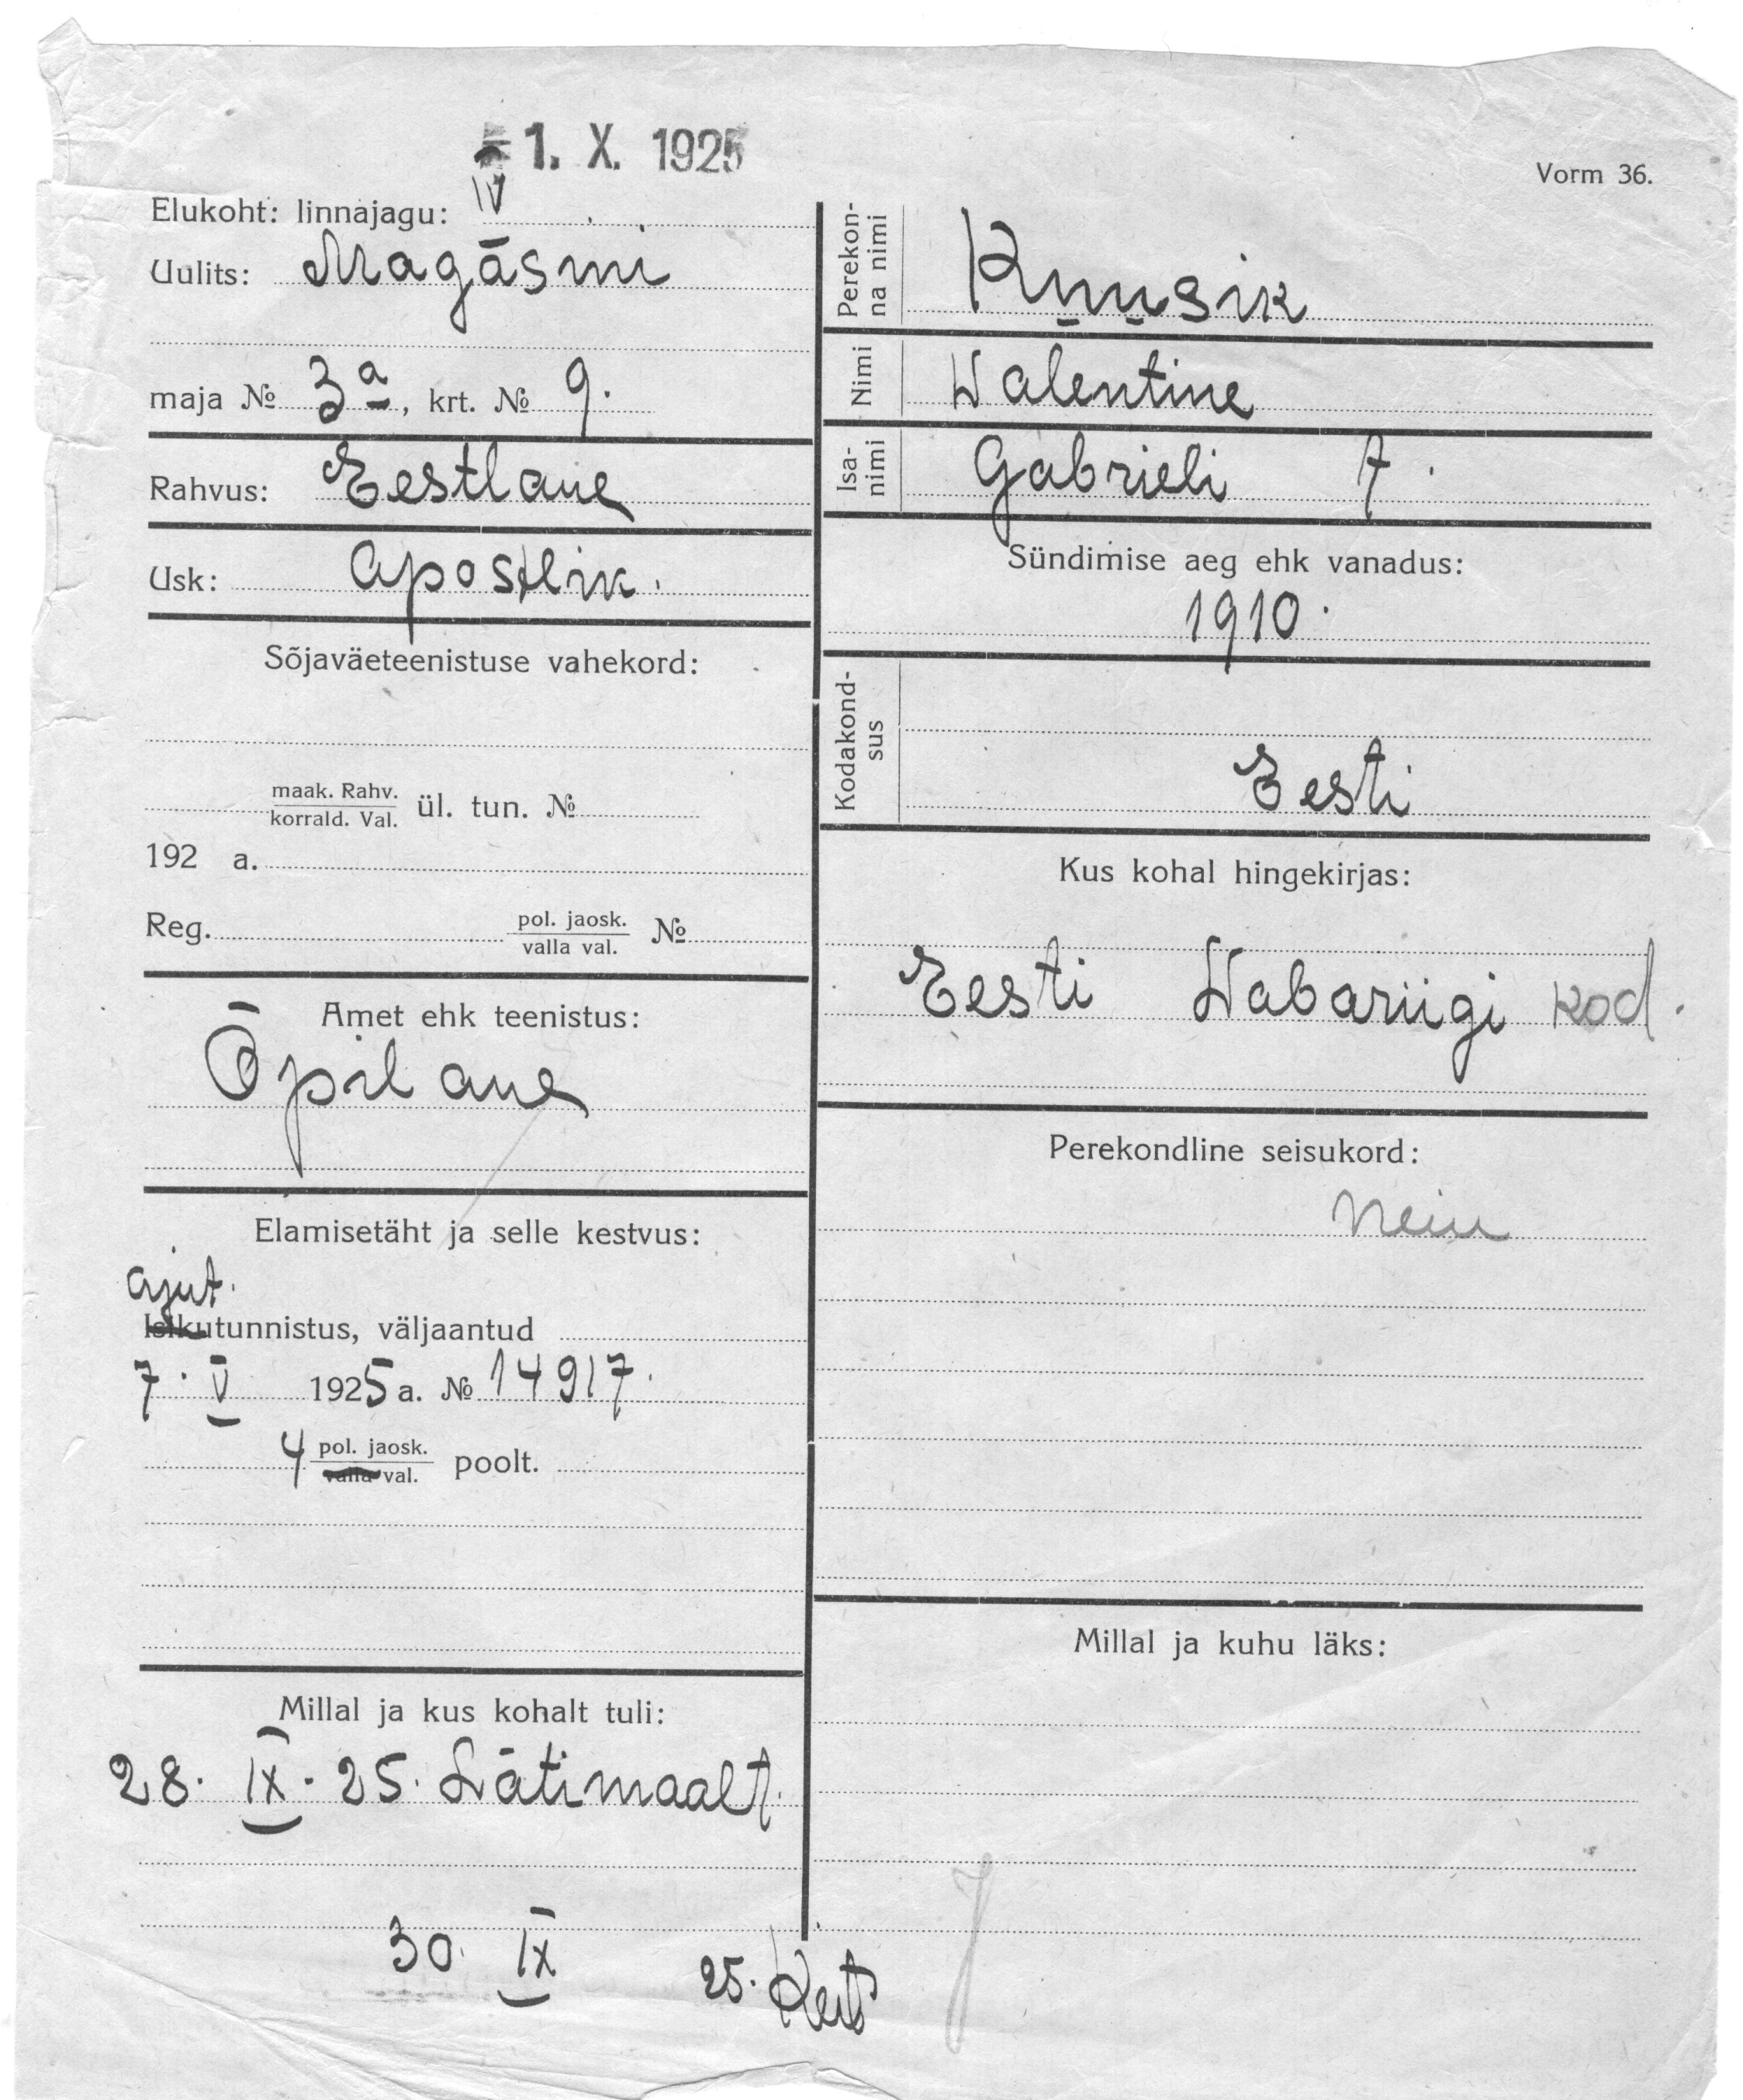 1. X. 1925
Vorm 36.
Elukoht: linnajagu: IV
Uulits: Magāsini
maja № 3a, krt. № 9.
Rahvus: Eestlane
Usk: Apostlik.
Sõjaväeteenistuse vahekord:
maak. Rahv.
korrald. Val. ül. tun. №
192 a.
Reg. pol. jaosk.
valla val. №
Amet ehk teenistus:
Õpilane
Elamisetäht ja selle kestvus:
Ajut.
Isikutunnistus, väljaantud
7. V 1925 a. № 14917.
4 pol. jaosk.
valla val. poolt.
Millal ja kus kohalt tuli:
28. IX. 25. Lätimaalt.
Perekon-
na nimi Kuusik
Nimi Walentine
Isa-
nimi Gabrieli t.
Sündimise aeg ehk vanadus:
1910.
Kodakond-
sus Eesti
Kus kohal hingekirjas:
Eesti Wabariigi kod.
Perekondline seisukord:
Neiu
Millal ja kuhu läks:
30. IX 25.